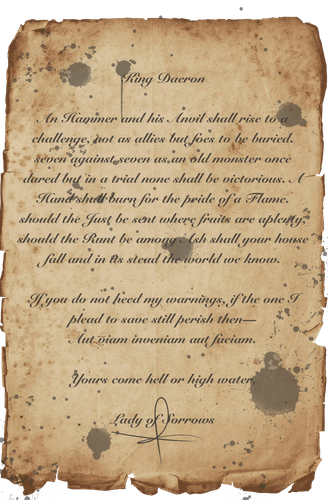 King Daeron
An Hammer and his Anvil shall rise to a
challenge, not as allies but foes to be buried.
seven against seven as an old monster once
dared but in a trial none shall be victorious. A
Hand shall burn for the pride of a Flame.
should the Just be sent where fruits are aplenty,
should the Runt be among Ash shall your house
fall and in its stead the world we know.
If you do not heed my warnings, if the one I
plead to save still perish then—
Aut viam inveniam aut faciam.
Yours come hell or high water,
Lady of Sorrows